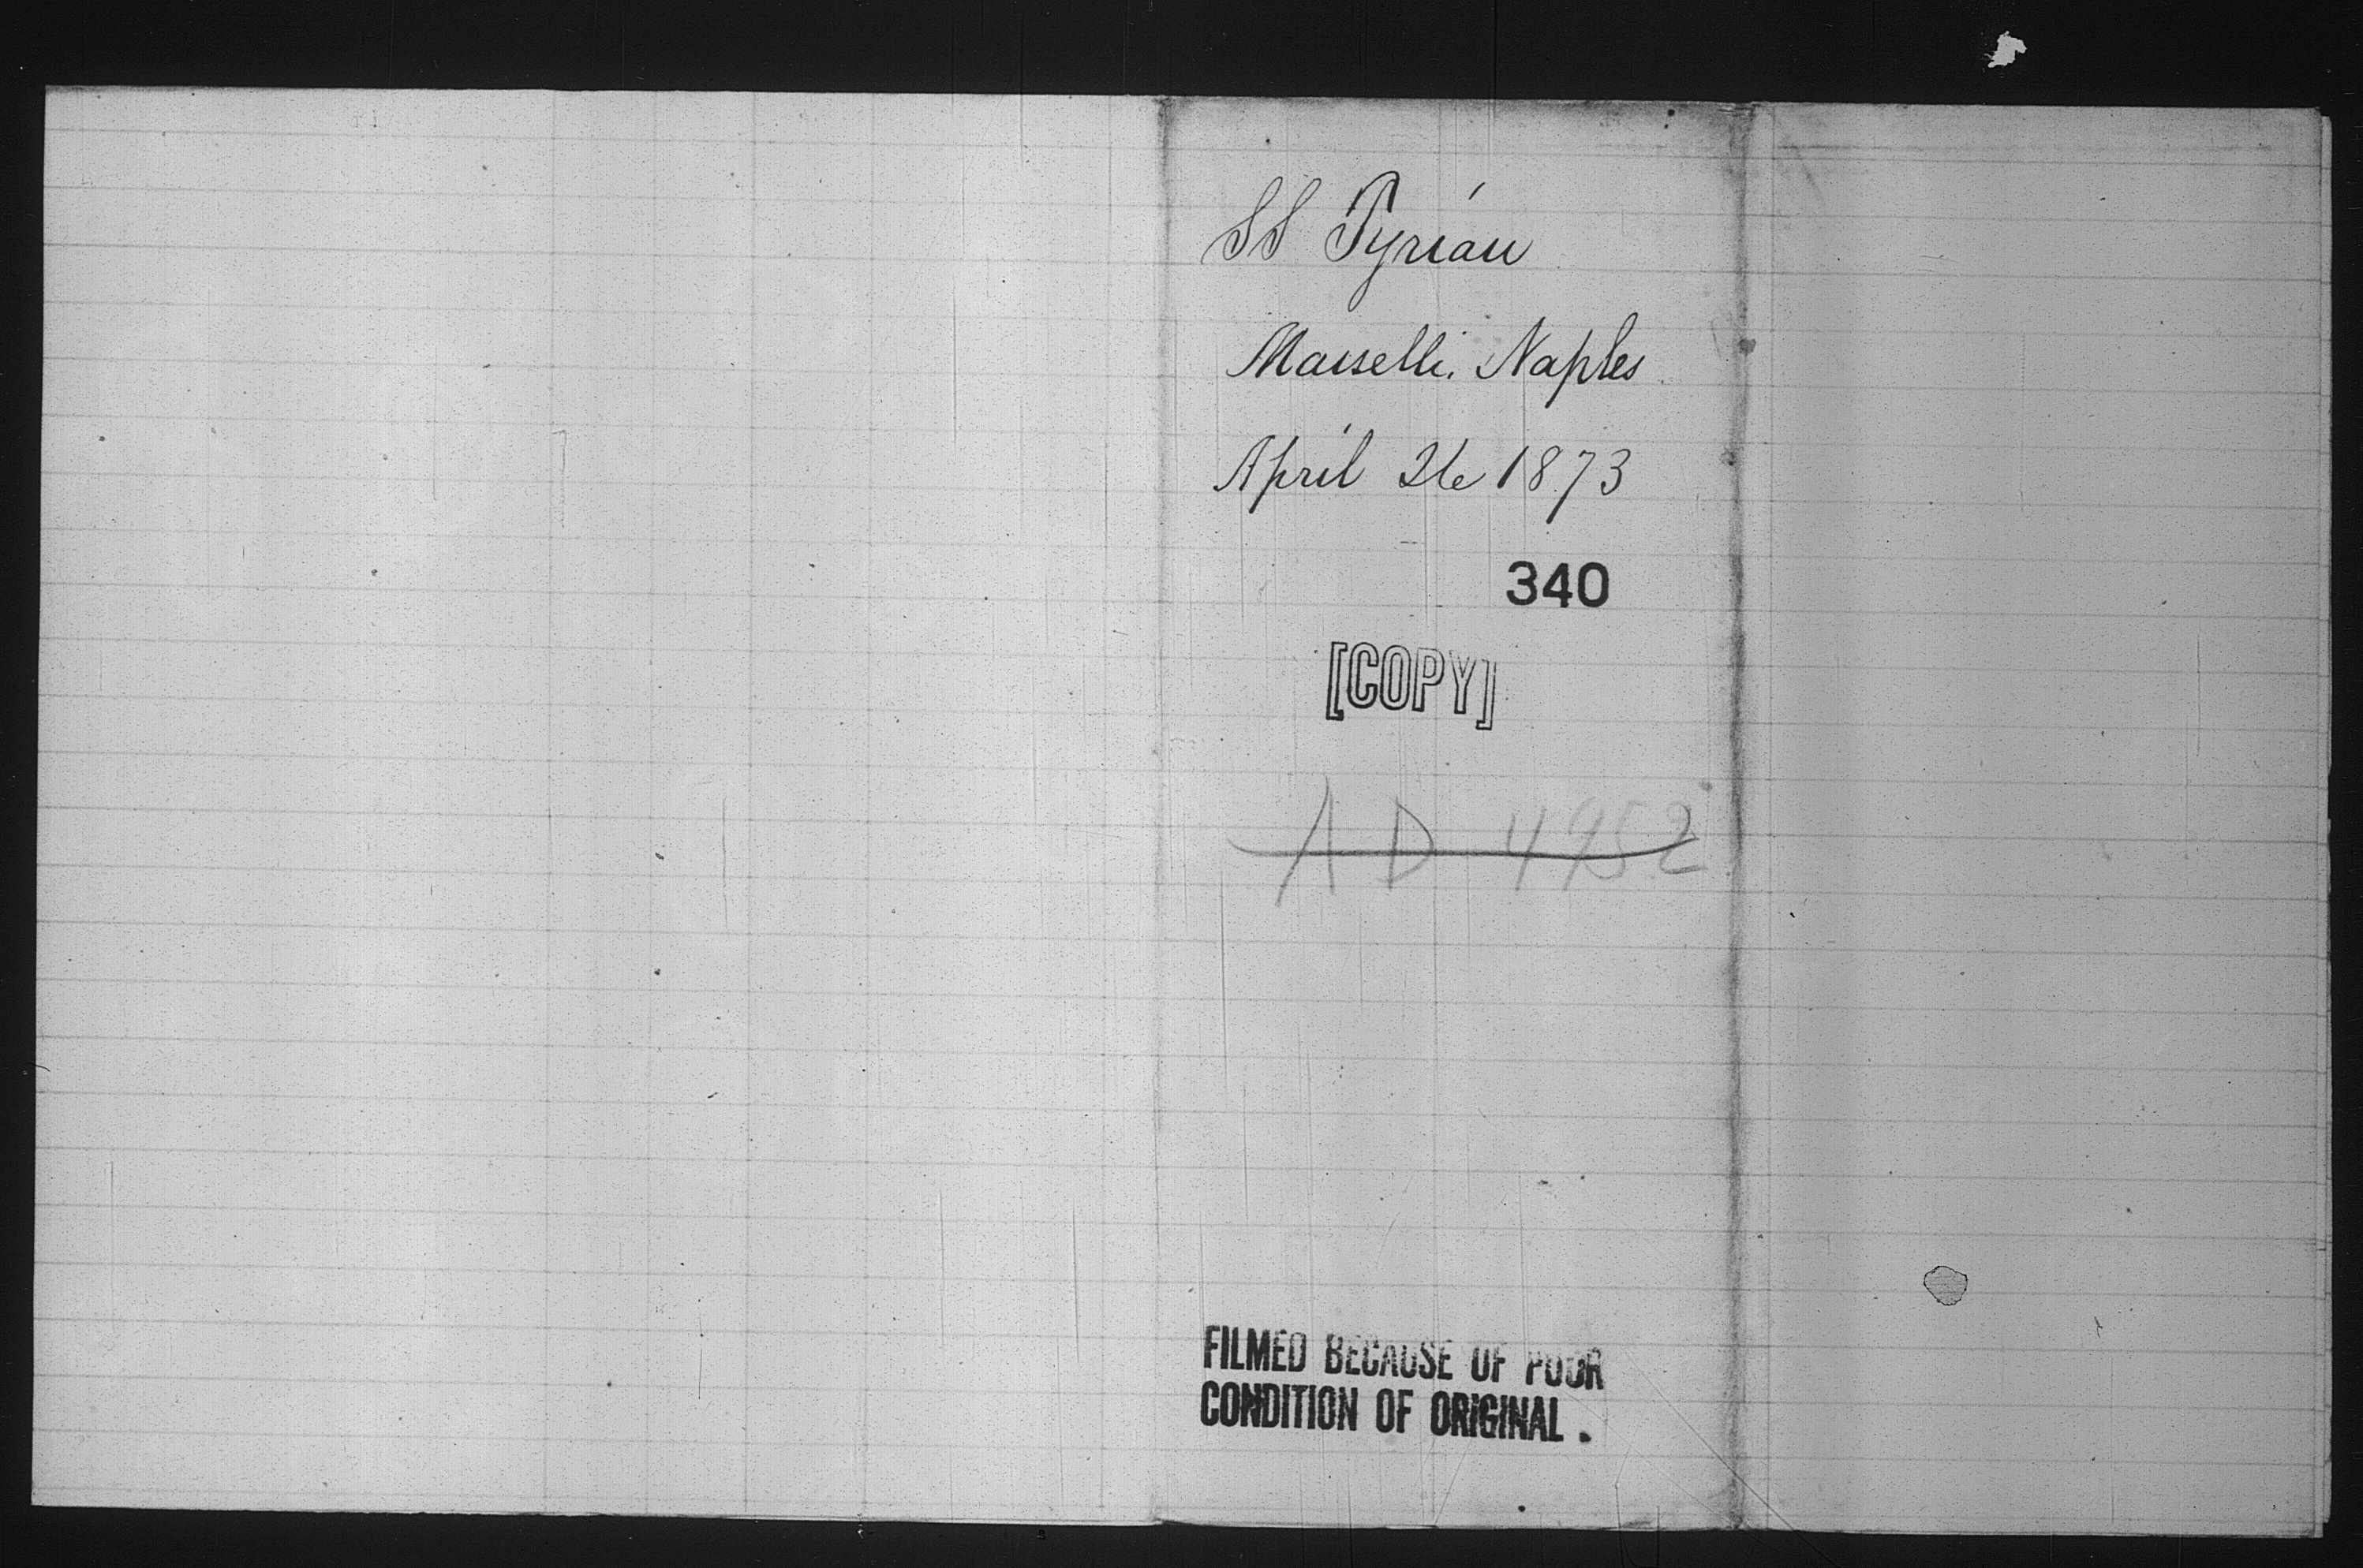 SS Tyrian
Marselli. Naples
April 26 1873
340
[COPY]
A D 4952
FILMED BECAUSE OF POOR
CONDITION OF ORIGINAL.